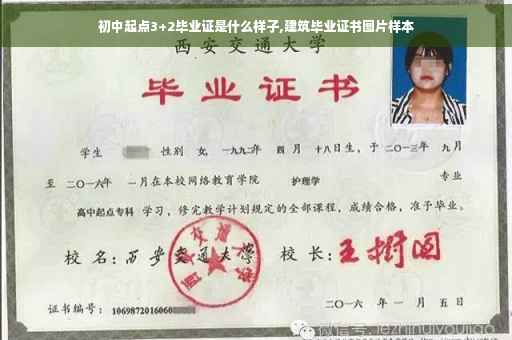 初中起点3+2毕业证是什么样子,建筑毕业证书图片样本
西安交通大学
毕业证书
学生 性别 女, 一九九二年 四月 十八日生, 于 二〇一三年 九月
至 二〇一六年 一月在本校网络教育学院 护理学 专业
高中起点专科 学习, 修完教学计划规定的全部课程, 成绩合格, 准予毕业。
校名: 西安交通大学 校长: 王树国
西安交通大学
证书编号: 1069872016060
二〇一六年 一月 五日
微信号: jezhinuiyoujiao